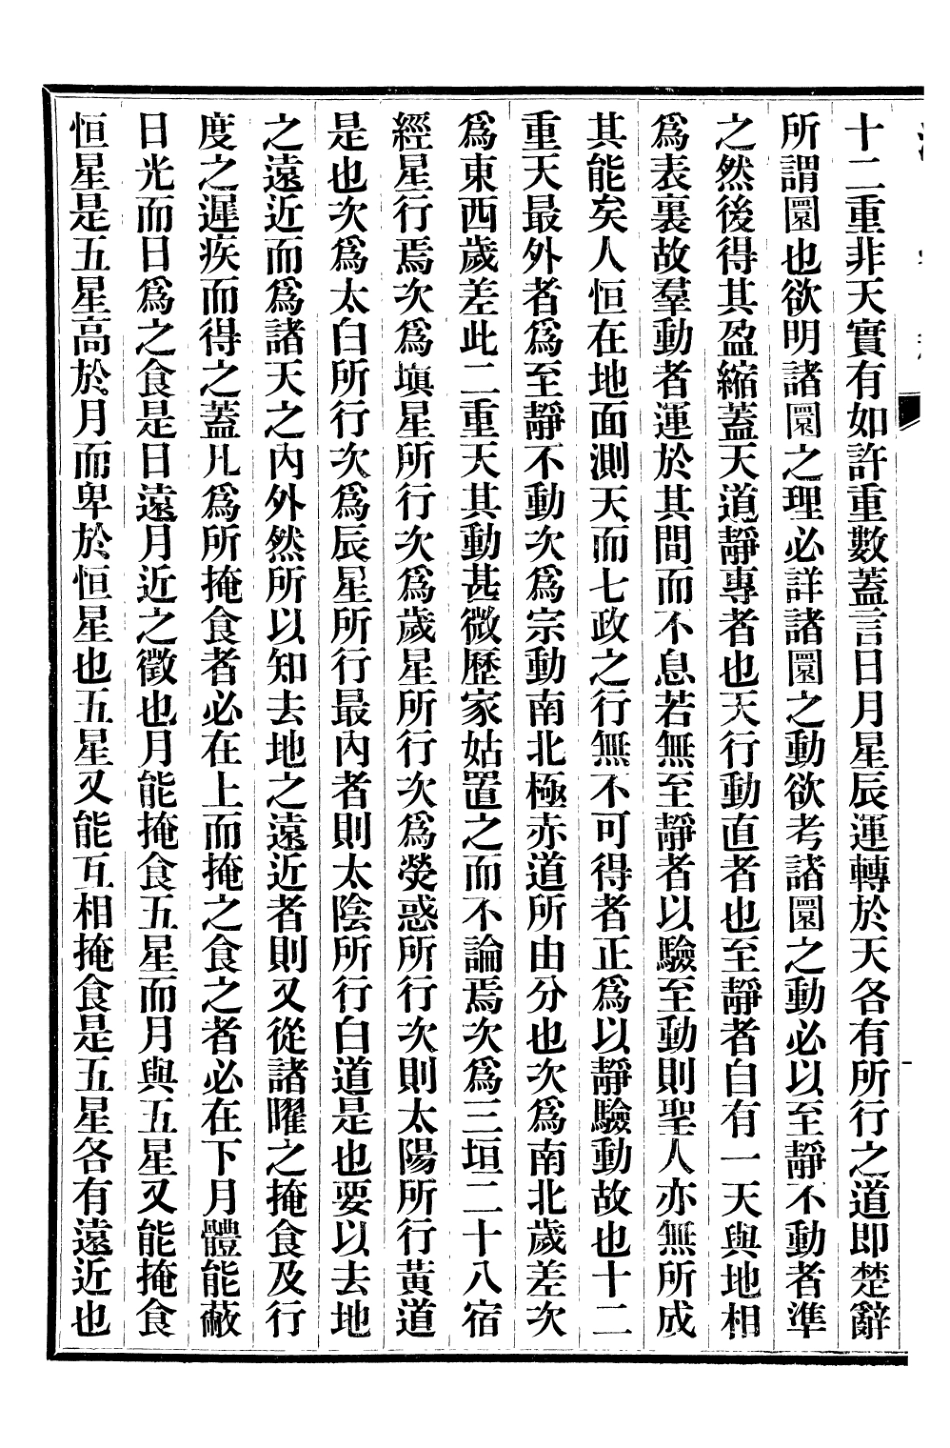 十二重非天實有如許重數蓋言日月星辰運轉於天各有所行之道即楚辭
所謂圜也欲明諸圜之理必詳諸圜之動欲考諸圜之動必以至靜不動者準
之然後得其盈縮蓋天道靜專者也天行動直者也至靜者自有一天與地相
爲表裏故羣動者運於其間而不息若無至靜者以驗至動則聖人亦無所成
其能矣人恒在地面測天而七政之行無不可得者正爲以靜驗動故也十二
重天最外者爲至靜不動次爲宗動南北極赤道所由分也次爲南北歲差次
爲東西歲差此二重天其動甚微歷家姑置之而不論焉次爲三垣二十八宿
經星行焉次爲塡星所行次爲歲星所行次爲熒惑所行次則太陽所行黃道
是也次爲太白所行次爲辰星所行最內者則太陰所行白道是也要以去地
之遠近而爲諸天之內外然所以知去地之遠近者則又從諸曜之掩食及行
度之遲疾而得之蓋凡爲所掩食者必在上而掩之食之者必在下月體能蔽
日光而日爲之食是日遠月近之徵也月能掩食五星而月與五星又能掩食
恒星是五星高於月而卑於恒星也五星又能互相掩食是五星各有遠近也